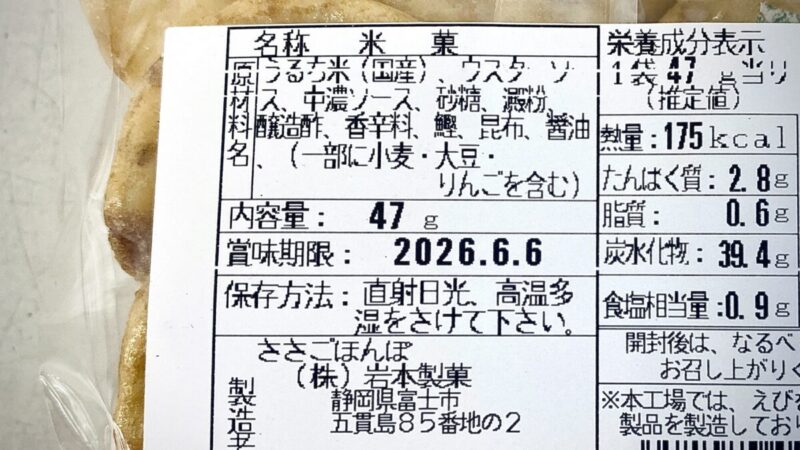 名称 米菓
原材料名
うるち米(国産)、ウスターソー
ス、中濃ソース、砂糖、澱粉、
醸造酢、香辛料、鰹、昆布、醤油
、(一部に小麦・大豆・
りんごを含む)
内容量: 47g
賞味期限: 2026.6.6
保存方法:直射日光、高温多
湿をさけて下さい。
ささごほんぽ
(株)岩本製菓
製造者
静岡県富士市
五貫島85番地の2
栄養成分表示
1袋47g当り
(推定値)
熱量:175kcal
たんぱく質:2.8g
脂質: 0.6g
炭水化物:39.4g
食塩相当量:0.9g
開封後は、なるべ
お召し上がりく
※本工場では、えびを
製品を製造しており